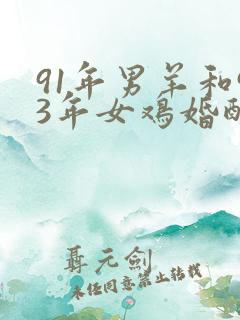 91年男羊和
3年女鸡婚
聂元剑
未经同意禁止转载